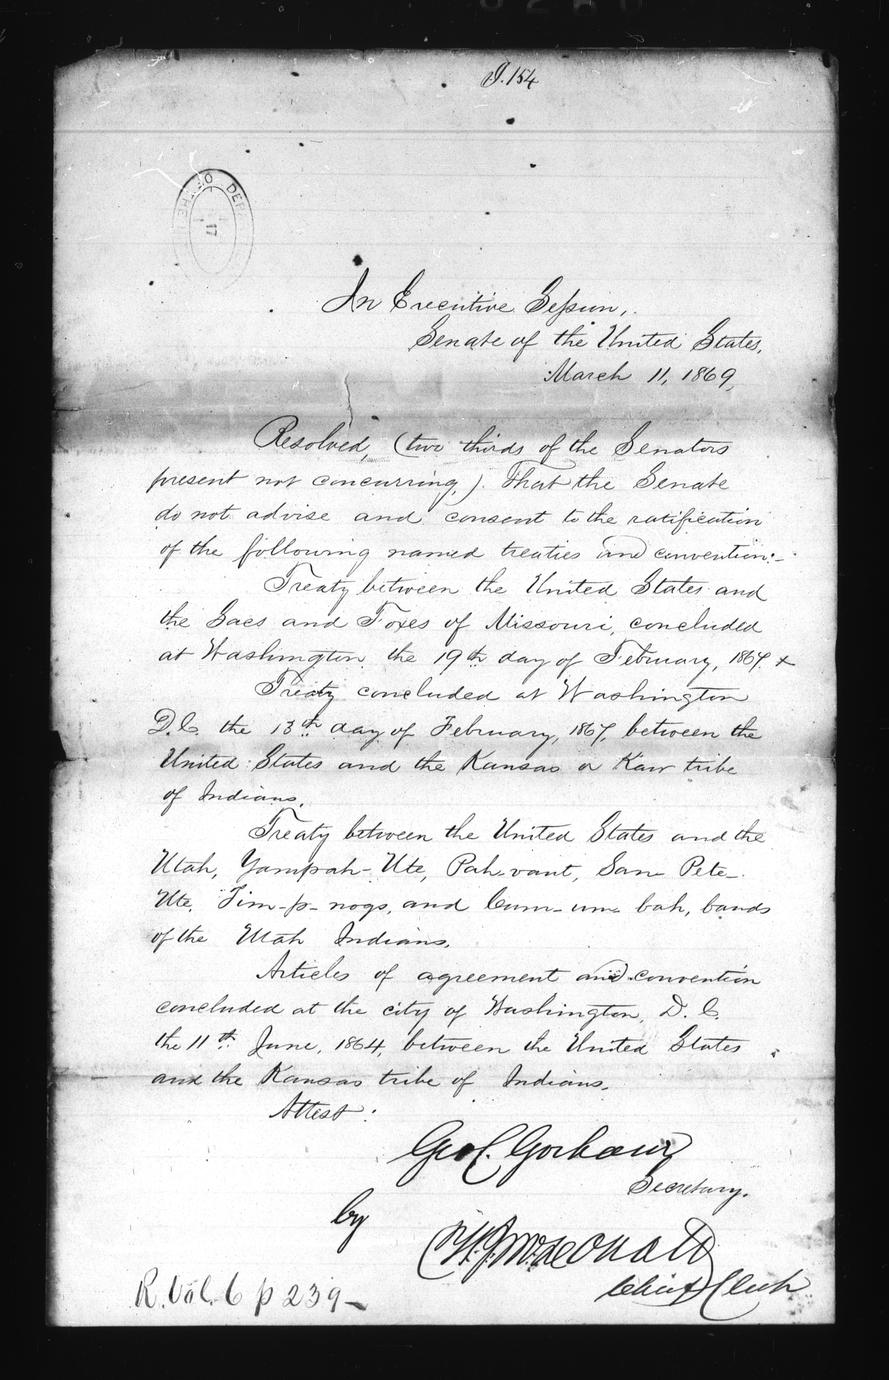 I. 154
DEP
17
In Executive Session,
Senate of the United States,
March 11, 1869,
Resolved, (two thirds of the Senators
present not concurring,) That the Senate
do not advise and consent to the ratification
of the following named treaties and convention:-
Treaty between the United States and
the Sacs and Foxes of Missouri, concluded
at Washington the 19th day of February, 1867. x
Treaty concluded at Washington
D.C. the 13th day of February, 1867 between the
United States and the Kansas or Kaw tribe
of Indians.
Treaty between the United States and the
Utah, Yampah-Ute, Pah vant, San Pete-
Ute, Tim-p-nogs, and Cum-um bah, bands
of the Utah Indians.
Articles of agreement and convention
concluded at the city of Washington, D.C.
the 11th June, 1864, between the United States
and the Kansas tribe of Indians.
Attest:
Geo C. Gorham
Secretary.
by
W. J. McDonald
Chief Clerk
R. Vol. 6 p 239-